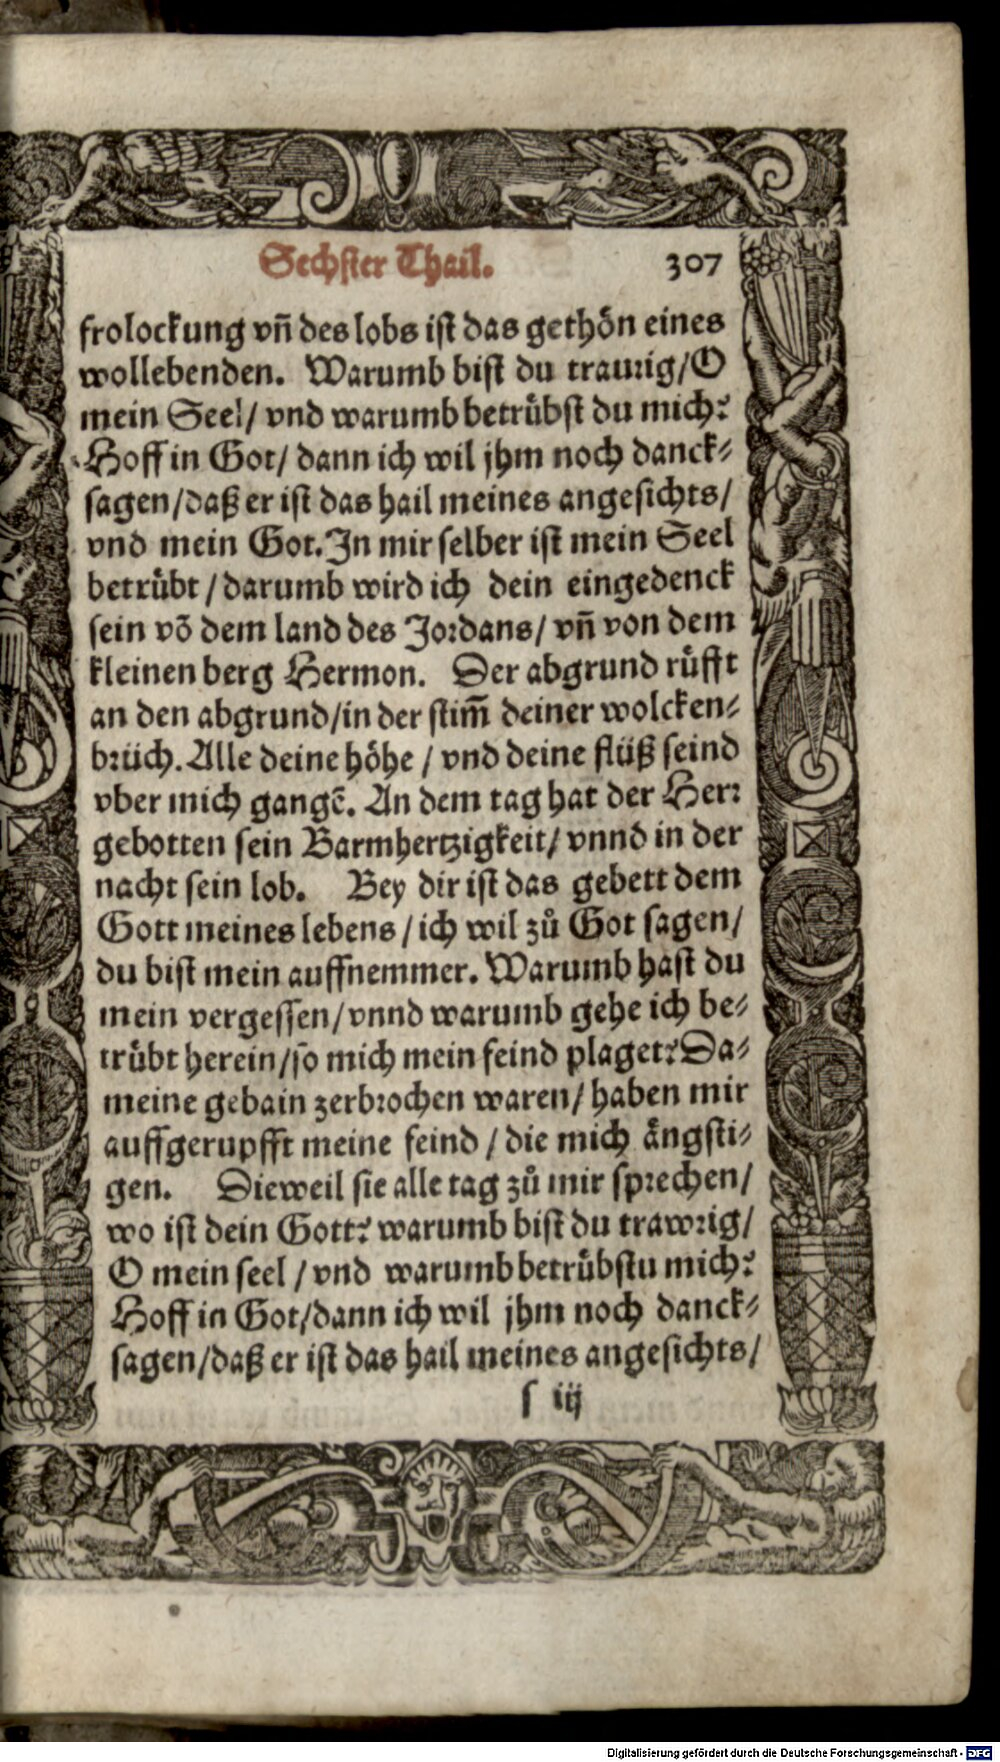 Sechster Thail. 307
frolockung vñ des lobs ist das gethön eines
wollebenden. Warumb bist du traurig/ O
mein Seel/ vnd warumb betrübst du mich?
Hoff in Got/ dann ich wil jhm noch danck⸗
sagen/ daß er ist das hail meines angesichts/
vnd mein Got. In mir selber ist mein Seel
betrübt / darumb wird ich dein eingedenck
sein võ dem land des Jordans/ vñ von dem
kleinen berg Hermon. Der abgrund rüfft
an den abgrund/ in der stim̃ deiner wolcken⸗
brüch. Alle deine höhe / vnd deine flüß seind
vber mich gangẽ. An dem tag hat der Herr
gebotten sein Barmhertzigkeit/ vnnd in der
nacht sein lob. Bey dir ist das gebett dem
Gott meines lebens / ich wil zů Got sagen/
du bist mein auffnemmer. Warumb hast du
mein vergessen/ vnnd warumb gehe ich be⸗
trübt herein/ so mich mein feind plaget? Da⸗
meine gebain zerbrochen waren/ haben mir
auffgerupfft meine feind / die mich ängsti⸗
gen. Dieweil sie alle tag zů mir sprechen/
wo ist dein Gott? warumb bist du trawrig/
O mein seel / vnd warumb betrübstu mich?
Hoff in Got/ dann ich wil jhm noch danck⸗
sagen/ daß er ist das hail meines angesichts/
s iij
Digitalisierung gefördert durch die Deutsche Forschungsgemeinschaft - DFG